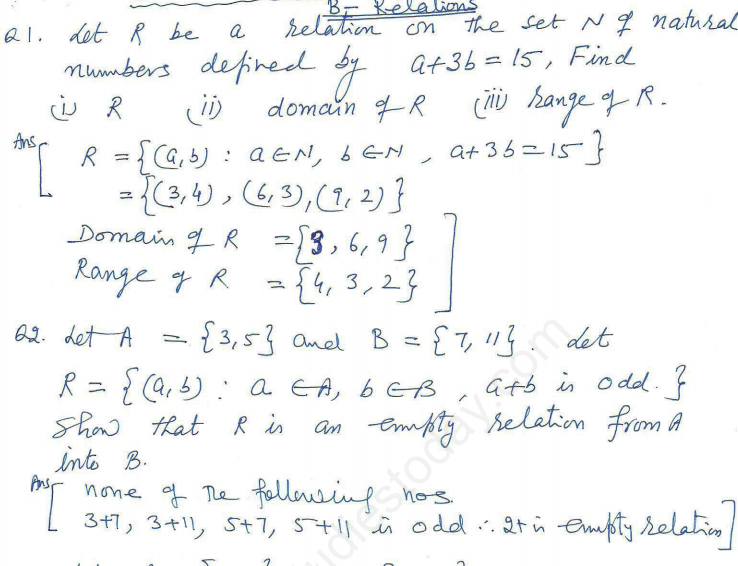 B - Relations
Q1. Let R be a relation on the set N of natural
numbers defined by a+3b = 15, Find
(i) R (ii) domain of R (iii) Range of R.
Ans [ R = {(a,b) : a ∈ N, b ∈ N, a+3b=15}
= {(3,4), (6,3), (9,2)}
Domain of R = {3, 6, 9}
Range of R = {4, 3, 2} ]
Q2. Let A = {3,5} and B = {7, 11}. Let
R = {(a,b) : a ∈ A, b ∈ B, a+b is odd.}
Show that R is an empty relation from A
into B.
Ans [ none of the following nos.
3+7, 3+11, 5+7, 5+11 is odd ∴ It is empty relation]